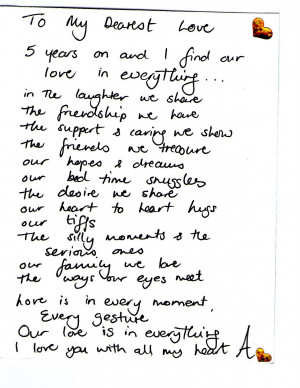 To My Dearest Love
5 years on and I find our
love in everything...
in the laughter we share
the friendship we have
the support & caring we show
the friends we treasure
our hopes & dreams
our bed time snuggles
the desire we share
our heart to heart hugs
our tiffs
The silly moments & the
serious ones
our family we love
the ways our eyes meet
Love is in every moment,
Every gesture
Our love is in everything
I love you with all my heart A